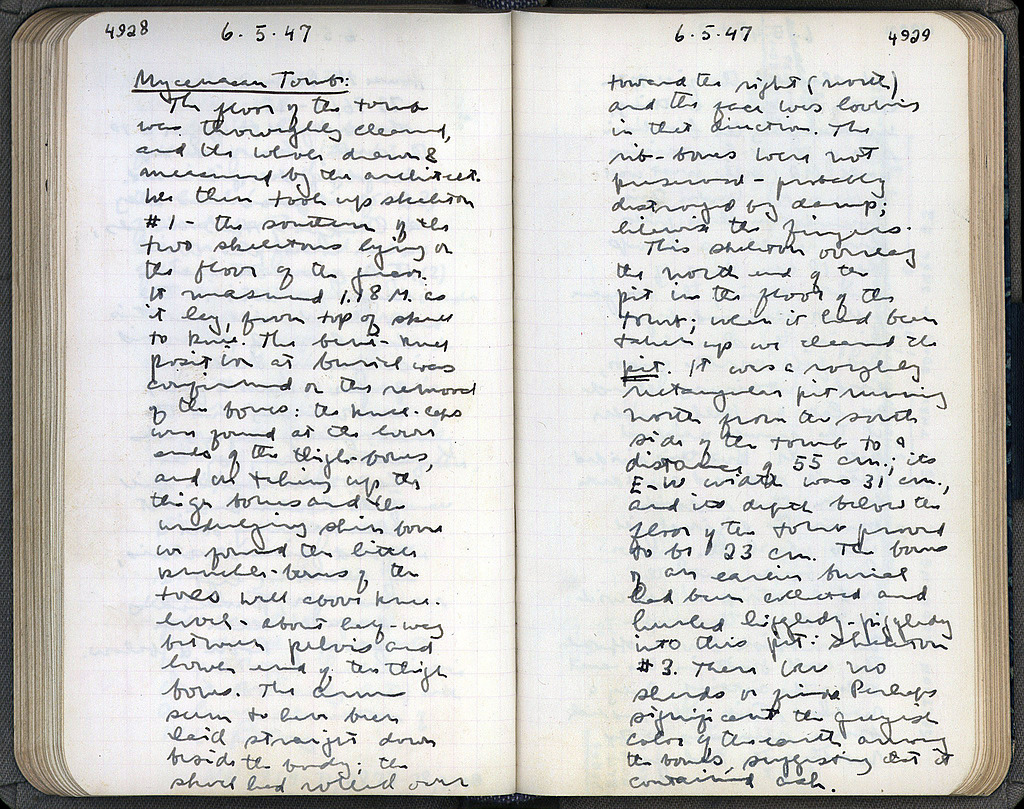 4928 6.5.47
Mycenaean Tomb:
The floor of the tomb
was thoroughly cleaned,
and the whole drawn &
measured by the architect.
We then took up skeleton
#1 - the southern of the
two skeletons lying on
the floor of the grave.
It measured 1.18 M. as
it lay, from top of skull
to knee. The bent-knee
position at burial was
confirmed on the removal
of the bones: the knee-caps
were found at the lower
ends of the thigh-bones,
and on taking up the
thigh bones and the
underlying shin bones
we found the little
knuckle-bones of the
toes well above knee-
level - about half-way
between pelvis and
lower end of the thigh
bones. The arms
seem to have been
laid straight down
beside the body; the
skull had rolled over
6.5.47 4929
toward the right (north)
and the face was looking
in that direction. The
rib-bones were not
preserved - probably
destroyed by damp;
likewise the fingers.
This skeleton overlay
the north end of the
pit in the floor of the
tomb; when it had been
taken up we cleaned the
pit. It was a roughly
rectangular pit running
north from the south
side of the tomb to a
distance of 55 cm.; its
E-W width was 31 cm.,
and its depth below the
floor of the tomb proved
to be 23 cm. The bones
of an earlier burial
had been collected and
hurled higgledy-piggledy
into this pit: Skeleton
#3. There were no
sherds or finds. Perhaps
significant the greyish
color of the earth among
the bones, suggesting that it
contained ash.